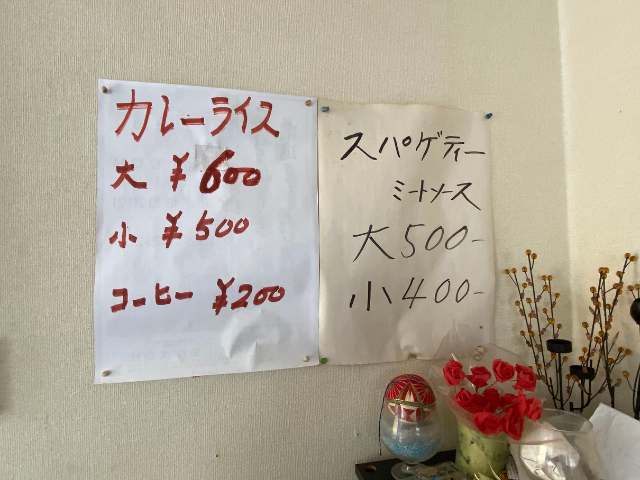 カレーライス
大 ¥600
小 ¥500
コーヒー ¥200
スパゲティー
ミートソース
大500-
小400-